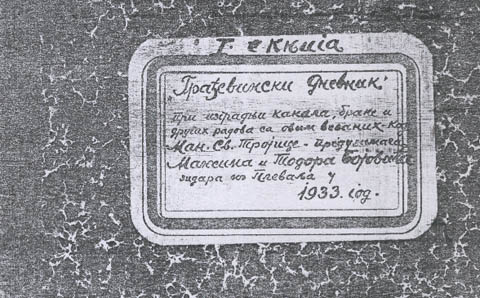 I. Књига
"Грађевински Дневник"
при изградњи канала, бране и
других радова са овим везаних - код
Ман. Св. Тројице - предузимача
Максима и Тодора Војовића
зидара из Плеваља у
1933. год.